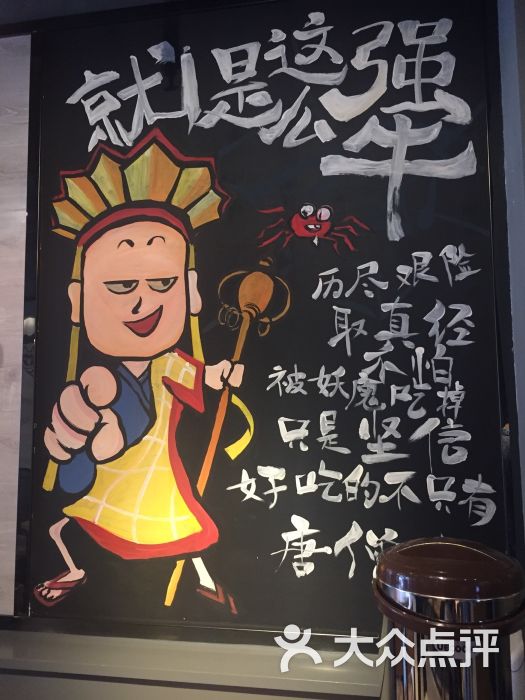 就是这么犟
历尽艰险
取真经
不怕
被妖魔吃掉
只是坚信
好吃的不只有
唐僧
大众点评